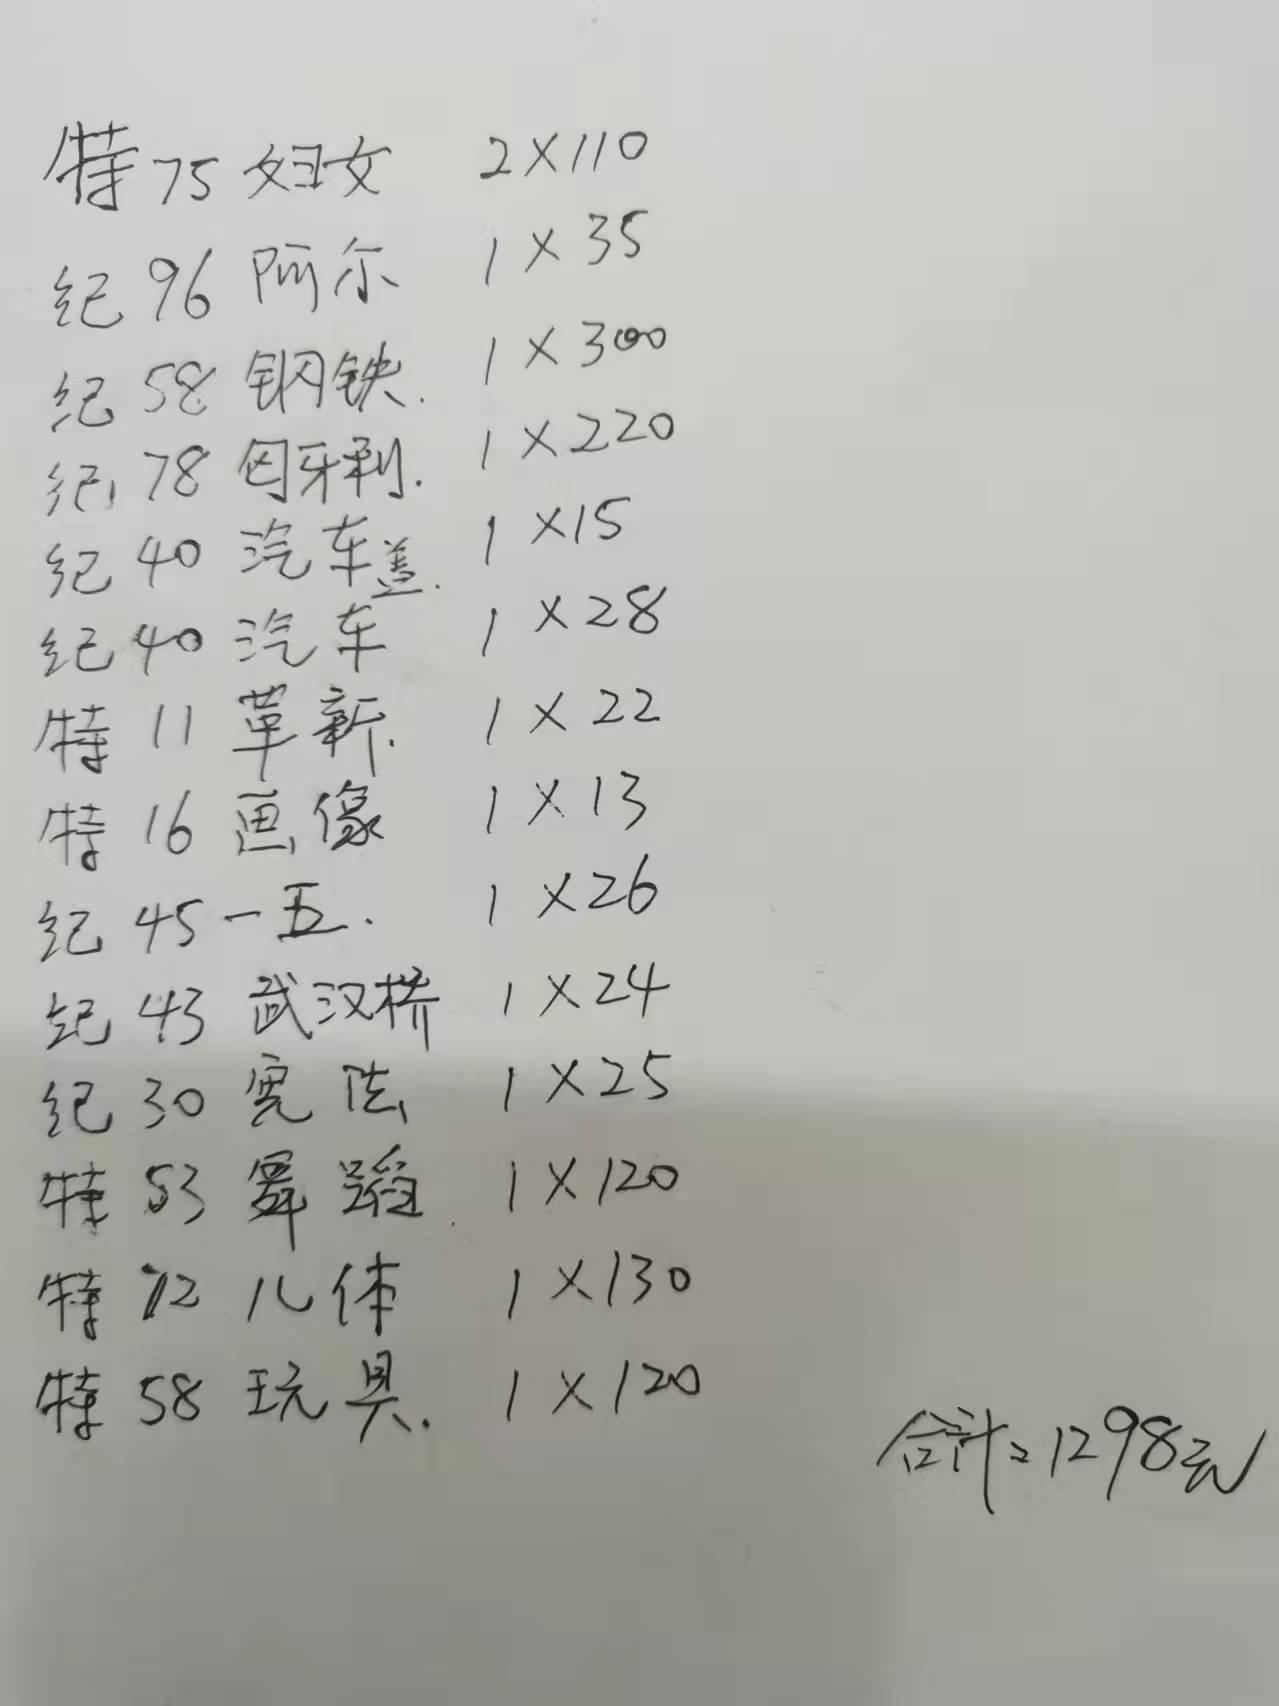 特75妇女 2×110
纪96阿尔 1×35
纪58钢铁. 1×300
纪78匈牙利. 1×220
纪40汽车盖. 1×15
纪40汽车 1×28
特11革新. 1×22
特16画像 1×13
纪45一五. 1×26
纪43武汉桥 1×24
纪30宪法 1×25
特53舞蹈 1×120
特72儿体 1×130
特58玩具. 1×120
合计:1298元